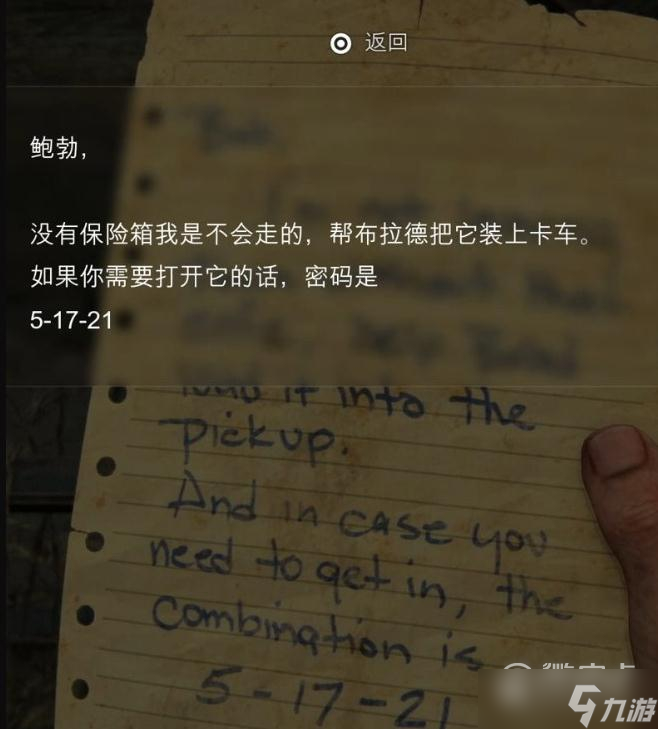 返回
鲍勃，
没有保险箱我是不会走的，帮布拉德把它装上卡车。
如果你需要打开它的话，密码是
5-17-21
load it into the
pickup.
And in case you
need to get in, the
combination is
5-17-21
九游